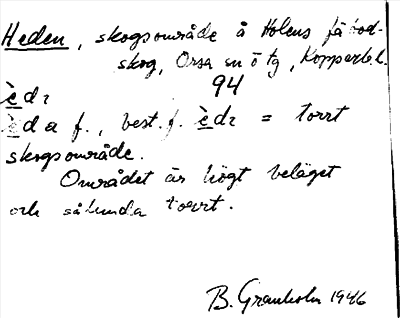 Heden, skogsområde å Holens fäbod-
skog, Orsa sn ö tg, Kopparb. l.
94
èdı
èda f., best. f. èdı = torrt
skogsområde.
Området är högt beläget
och sålunda torrt.
B. Granholm 1946